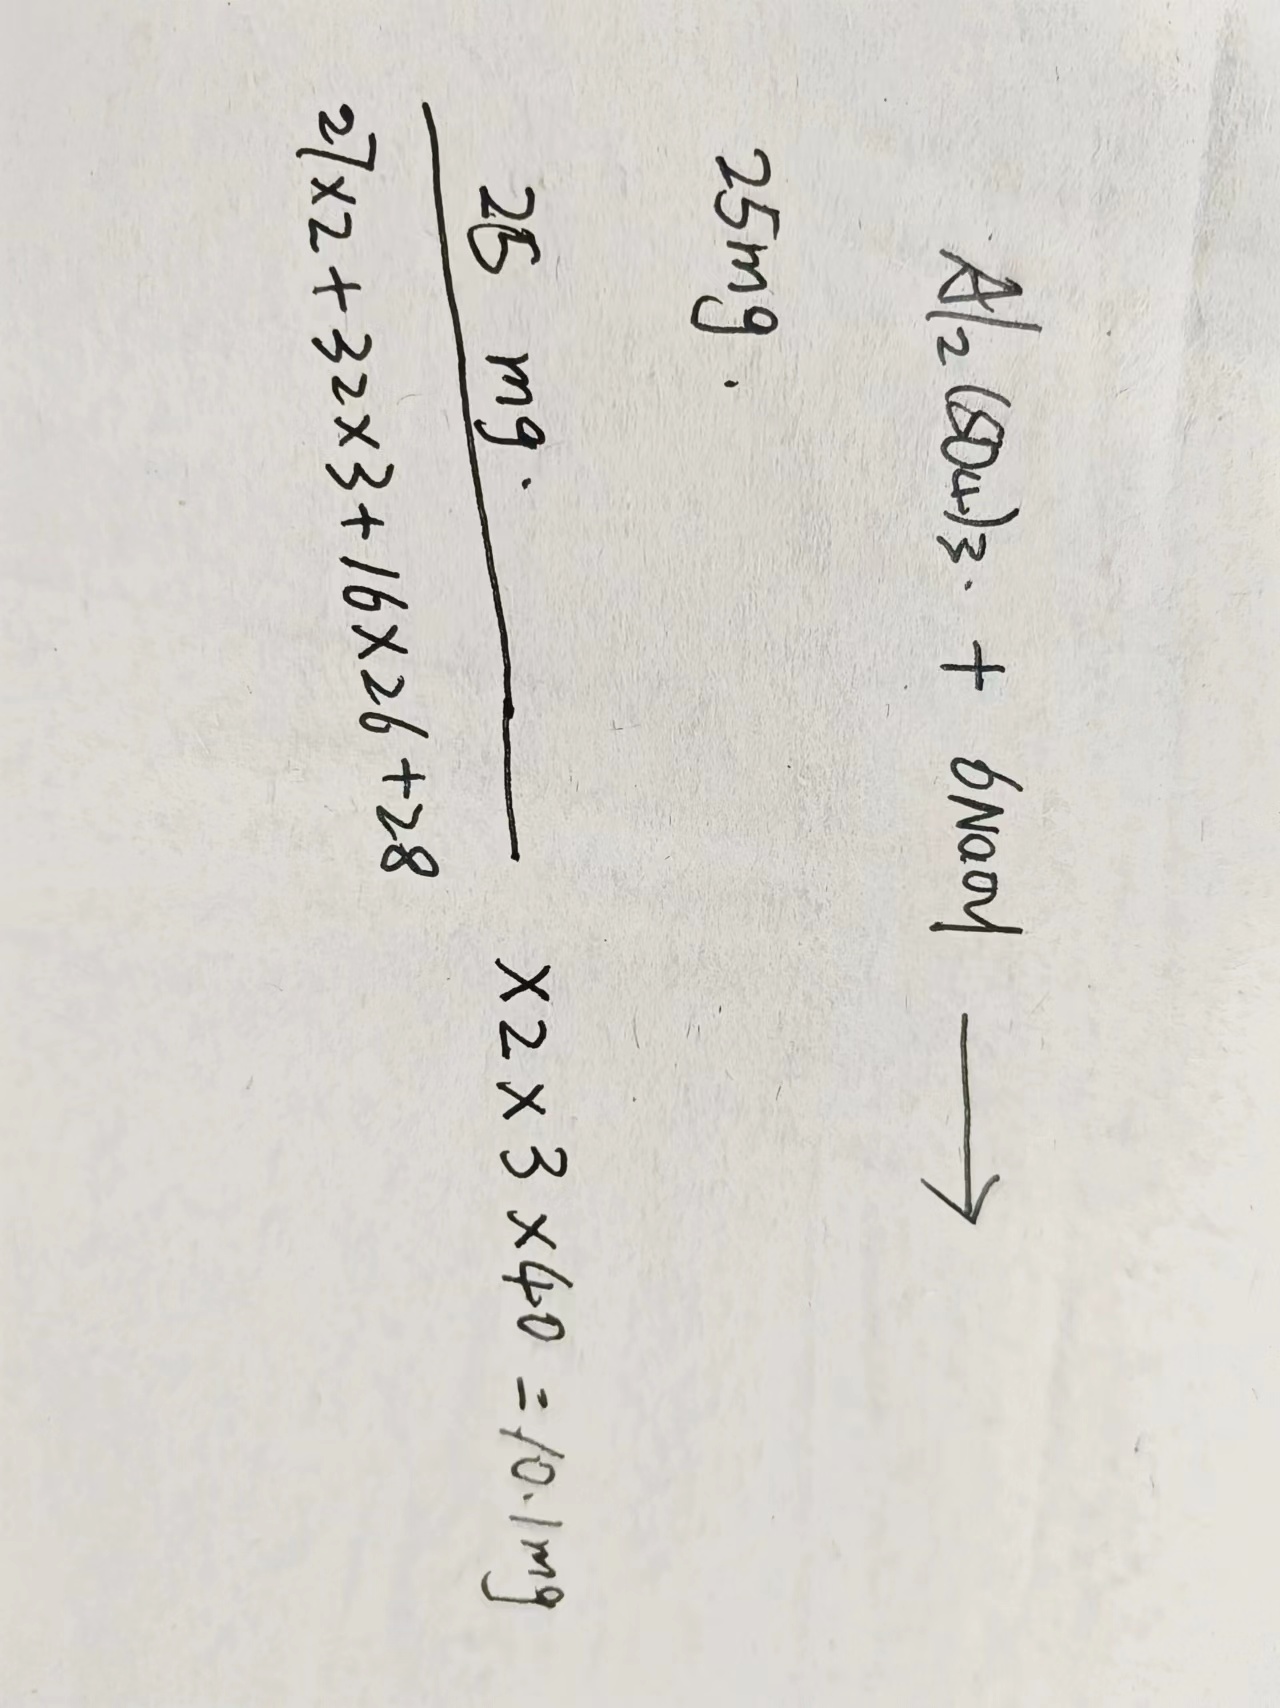 Al2(SO4)3. + 6NaOH ⟶
25mg.
25 mg. / 27×2+32×3+16×26+28 ×2×3×40=10.1mg